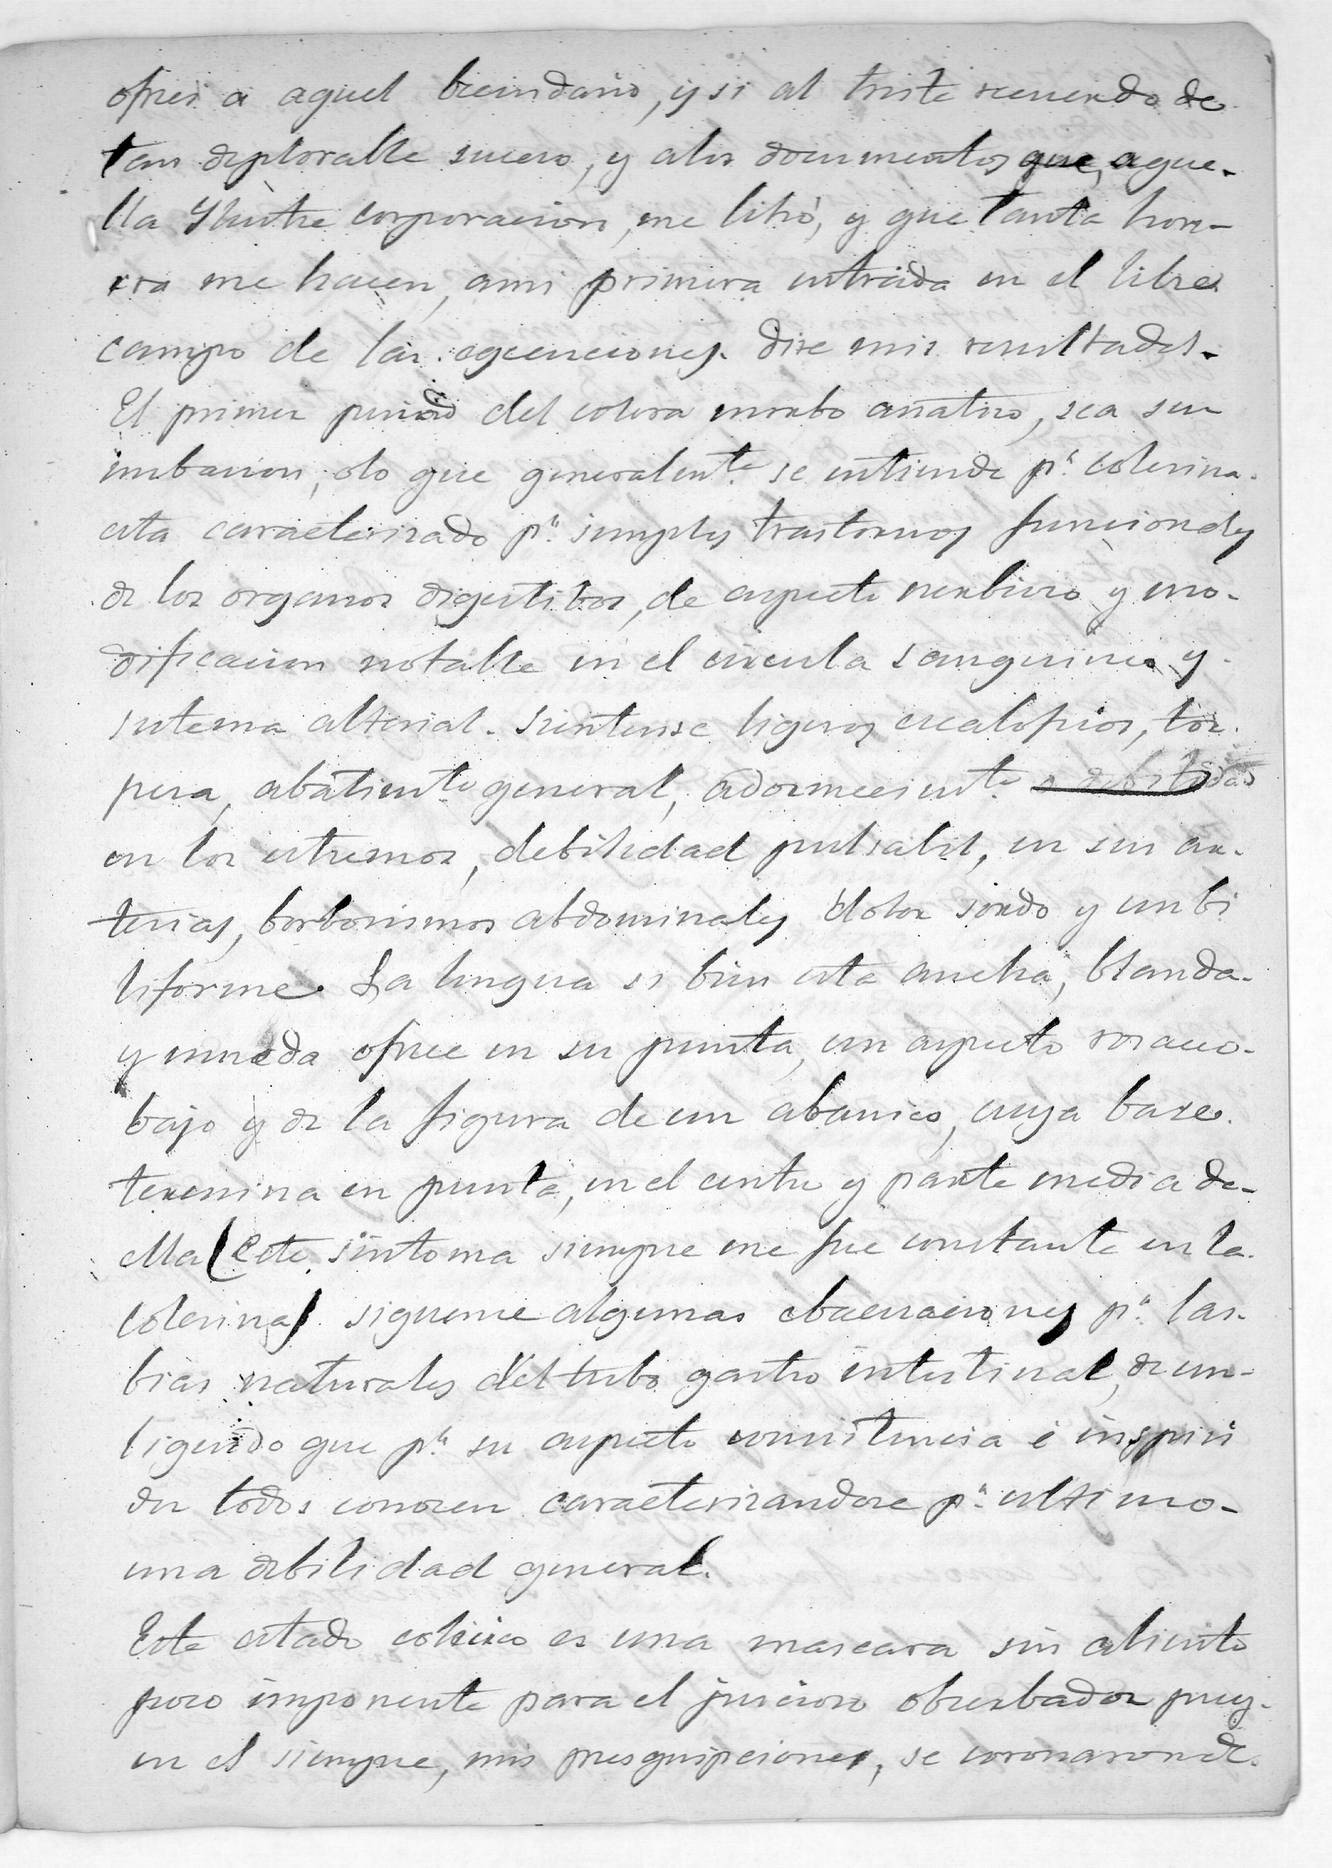 ofreci a aquel becindario, y si al triste recuerdo de
tan deplorable suceso, y alos documentos que, aque-
lla Yllustre corporacion, me libró, y que tanta hon-
rra me hacen, ami primera entrada en el libre
campo de las egecuciones. dire mis resultados.
El primer periodo del colera morbo aciatico, sea su
imbacion, olo que generalmte. se entiende pr. colerina.
esta caracterizado pr. simples trastornos funcionales
de los organos digestibos, de aspecto nerbioso y mo-
dificacion notable en el circulo sanguineo y
sistema alterial. Sientense ligeros escalofrios, tor-
peza, abatimto. general, adormecimto.
en los estremos, debilidad pulsatil, en sus ar-
terias, borborismos abdominales dolor sordo y umbi
liforme. La lengua si bien esta ancha, blanda.
y umeda ofrece en su punta, un aspecto rosaceo-
bajo y de la figura de un abanico, cuya base.
termina en punta, en el centro y parte media de-
ella (Este sintoma siempre me fue constante en la
colerina) sigueme algunas ebacuaciones pr. las.
bias naturales del tubo gastro intestinal, de un-
liquido que pr. su aspecto consistencia é insipiri
des todos conocen caracterizandose pr. ultimo-
una debilidad general.
Este estado colerico es una mascara sin aliento
pero imponente para el juicioso obserbador pues.
en el siempre, mis presquipciones, se coronaron de.